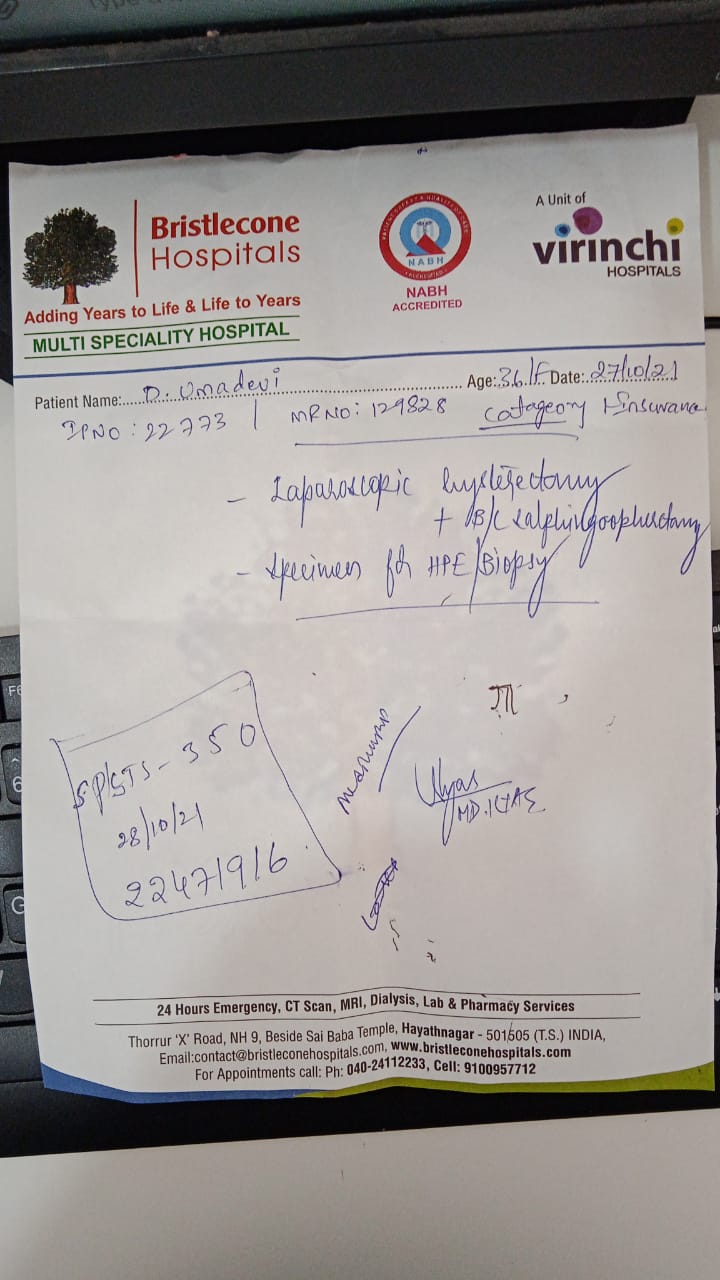 Bristlecone
Hospitals
Adding Years to Life & Life to Years
MULTI SPECIALITY HOSPITAL
NABH
NABH
ACCREDITED
A Unit of
virinchi
HOSPITALS
Patient Name:..... D. Umadevi ..... Age: 36/F Date: 27/10/21
IPNO : 22773 | MRNO : 129828 Catageory Insurance
- Laparoscopic hysterectomy
+ B/L salphingoopherectomy
- Specimen for HPE/Biopsy
SP/STS-350
28/10/21
22471916
Ilyas
MD.ILYAS
24 Hours Emergency, CT Scan, MRI, Dialysis, Lab & Pharmacy Services
Thorrur 'X' Road, NH 9, Beside Sai Baba Temple, Hayathnagar - 501505 (T.S.) INDIA,
Email:contact@bristleconehospitals.com, www.bristleconehospitals.com
For Appointments call: Ph: 040-24112233, Cell: 9100957712